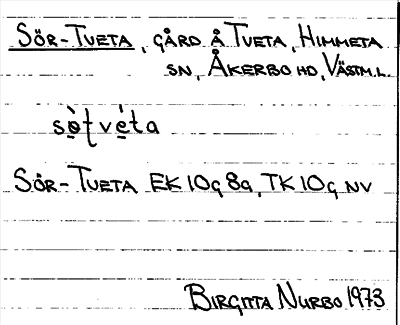 SÖR-TVETA, GÅRD Å TVETA, HIMMETA
SN, ÅKERBO HD, VÄSTM.L.
sø̀ṭvéta
SÖR-TVETA EK 10G 8a, TK 10G NV
BIRGITTA NURBO 1973